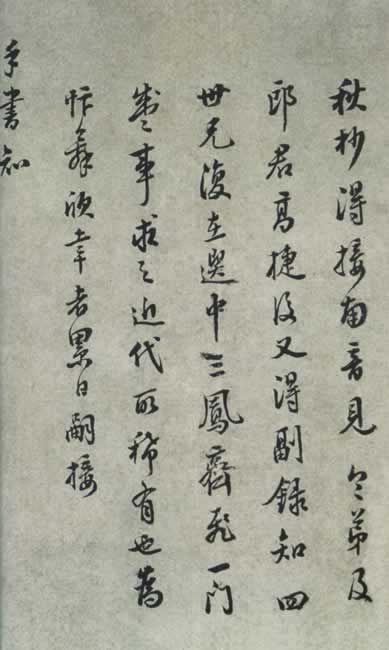 秋杪得接南音見 令弟及
郎君高捷後又得副錄知四
世兄復在選中三鳳齊飛一門
盛事求之近代所稀有也為
忭舞欣幸者累日嗣接
手書知